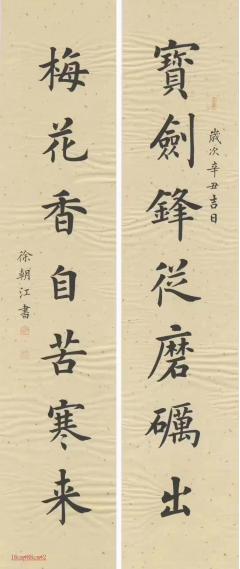 寶劍鋒從磨礪出
歲次辛丑吉日
梅花香自苦寒来
徐朝江書